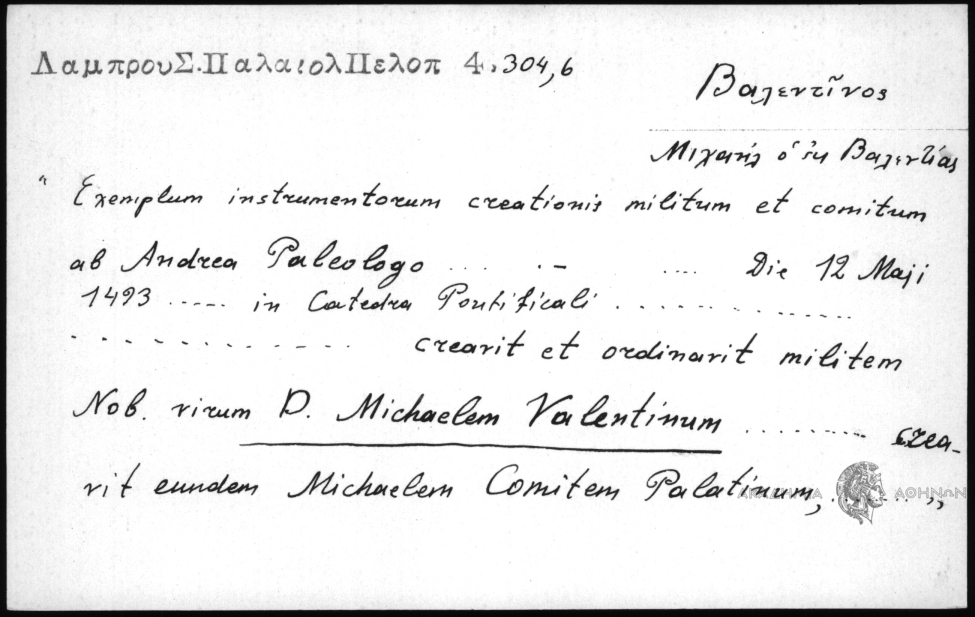 ΛαμπρουΣ.ΠαλαιολΠελοπ 4.304,6
Βαλεντῖνος
Μιχαὴλ ὁ ἐκ Βαλεντίας
" Exemplum instrumentorum creationis militum et comitum
ab Andrea Paleologo ... .– .... Die 12 Maji
1493 ..... in Catedra Pontificali ..............
.............. creavit et ordinavit militem
Nob. virum D. Michaelem Valentinum ......... crea-
vit eundem Michaelem Comitem Palatinum, ...... „
ΑΚΑΔΗΜΙΑ ΑΘΗΝΩΝ